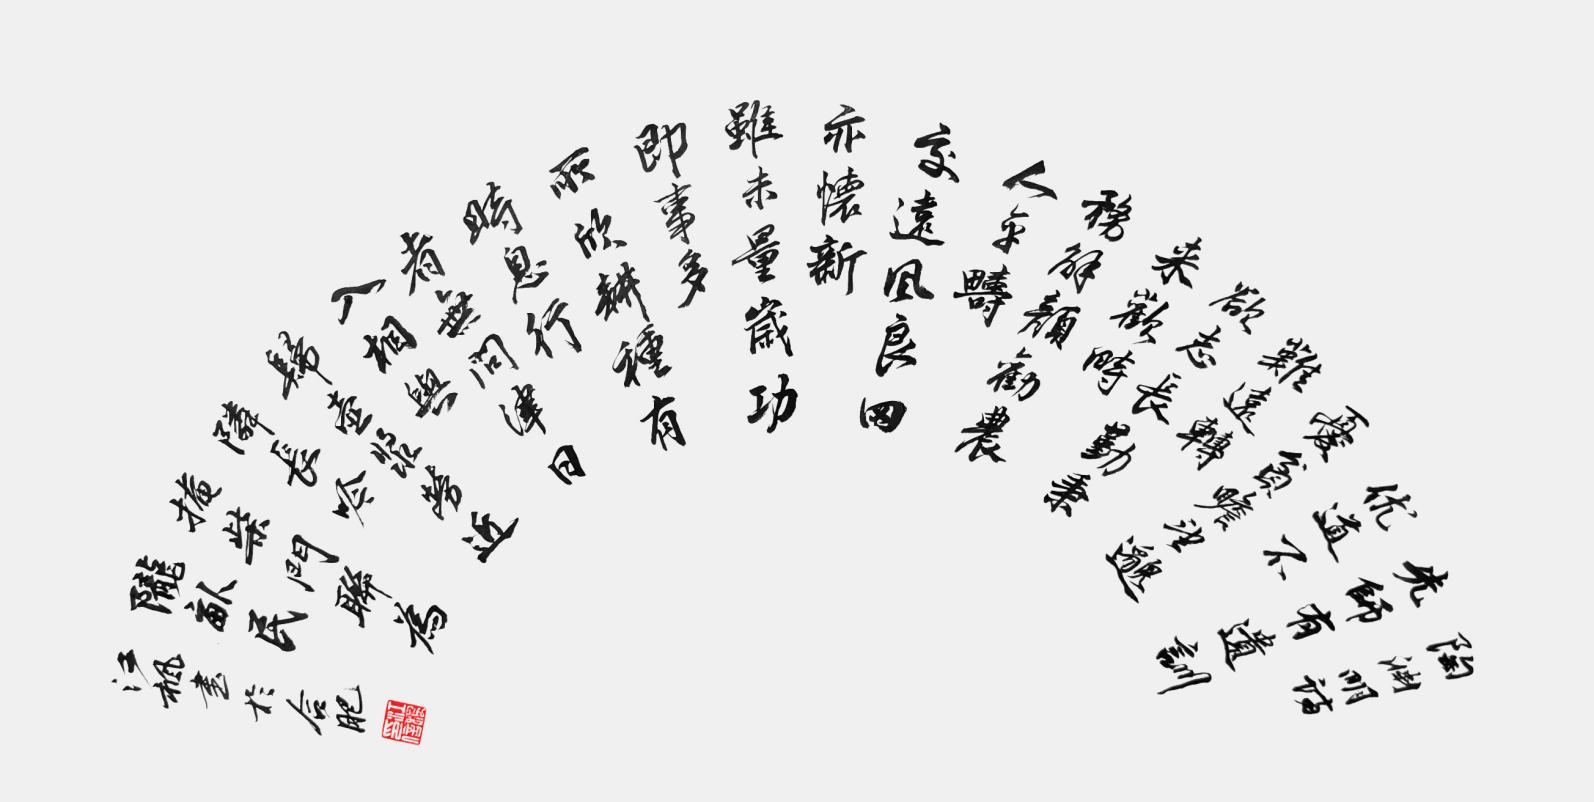 陶淵明詩
先師有遺訓
优道不
憂貧瞻望邈
難遠轉
欲志長勤秉
来歡時
務解顏勸農
人平疇
交遠風良田
亦懷新
雖未量歲功
即事多
所欣耕種有
時息行
者無問津日
入相與
歸壺漿勞近
隣長吟
掩柴門聯為
隴畝民
江楓書於合肥